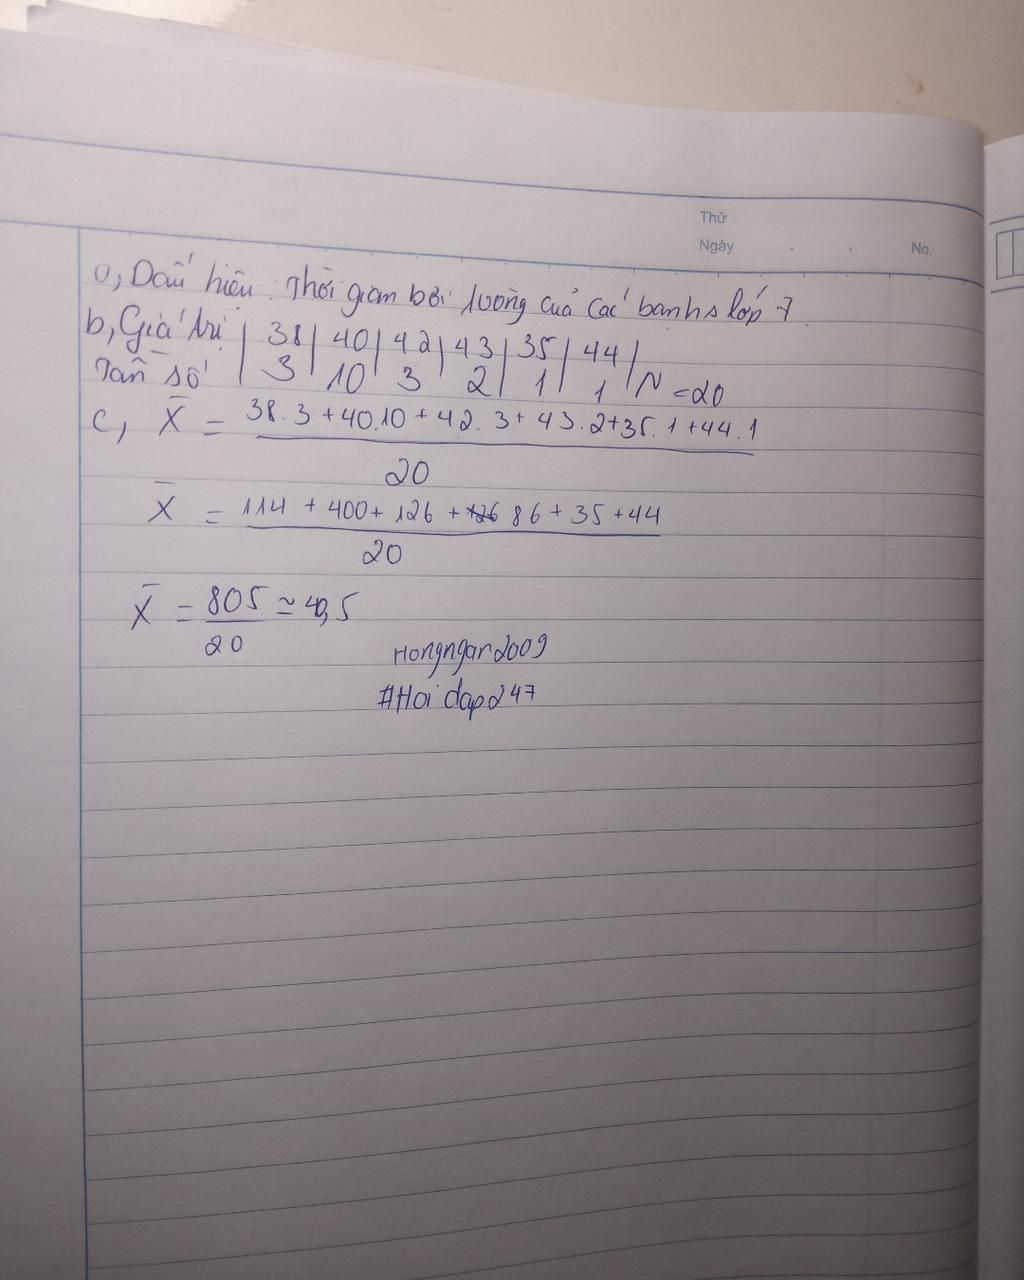 Thứ
Ngày . . No.
a, Dấu hiệu : Thời gian bơi lường của các bạn hs lớp 7
b, Giá trị | 38 | 40 | 42 | 43 | 35 | 44 |
Tần số | 3 | 10 | 3 | 2 | 1 | 1 | N = 20
c, X̄ = 38.3 + 40.10 + 42.3 + 43.2 + 35.1 + 44.1
20
X̄ = 114 + 400 + 126 + 86 + 35 + 44
20
X̄ = 805 ≃ 40,5
20
Hongngan2009
#Hoidap247